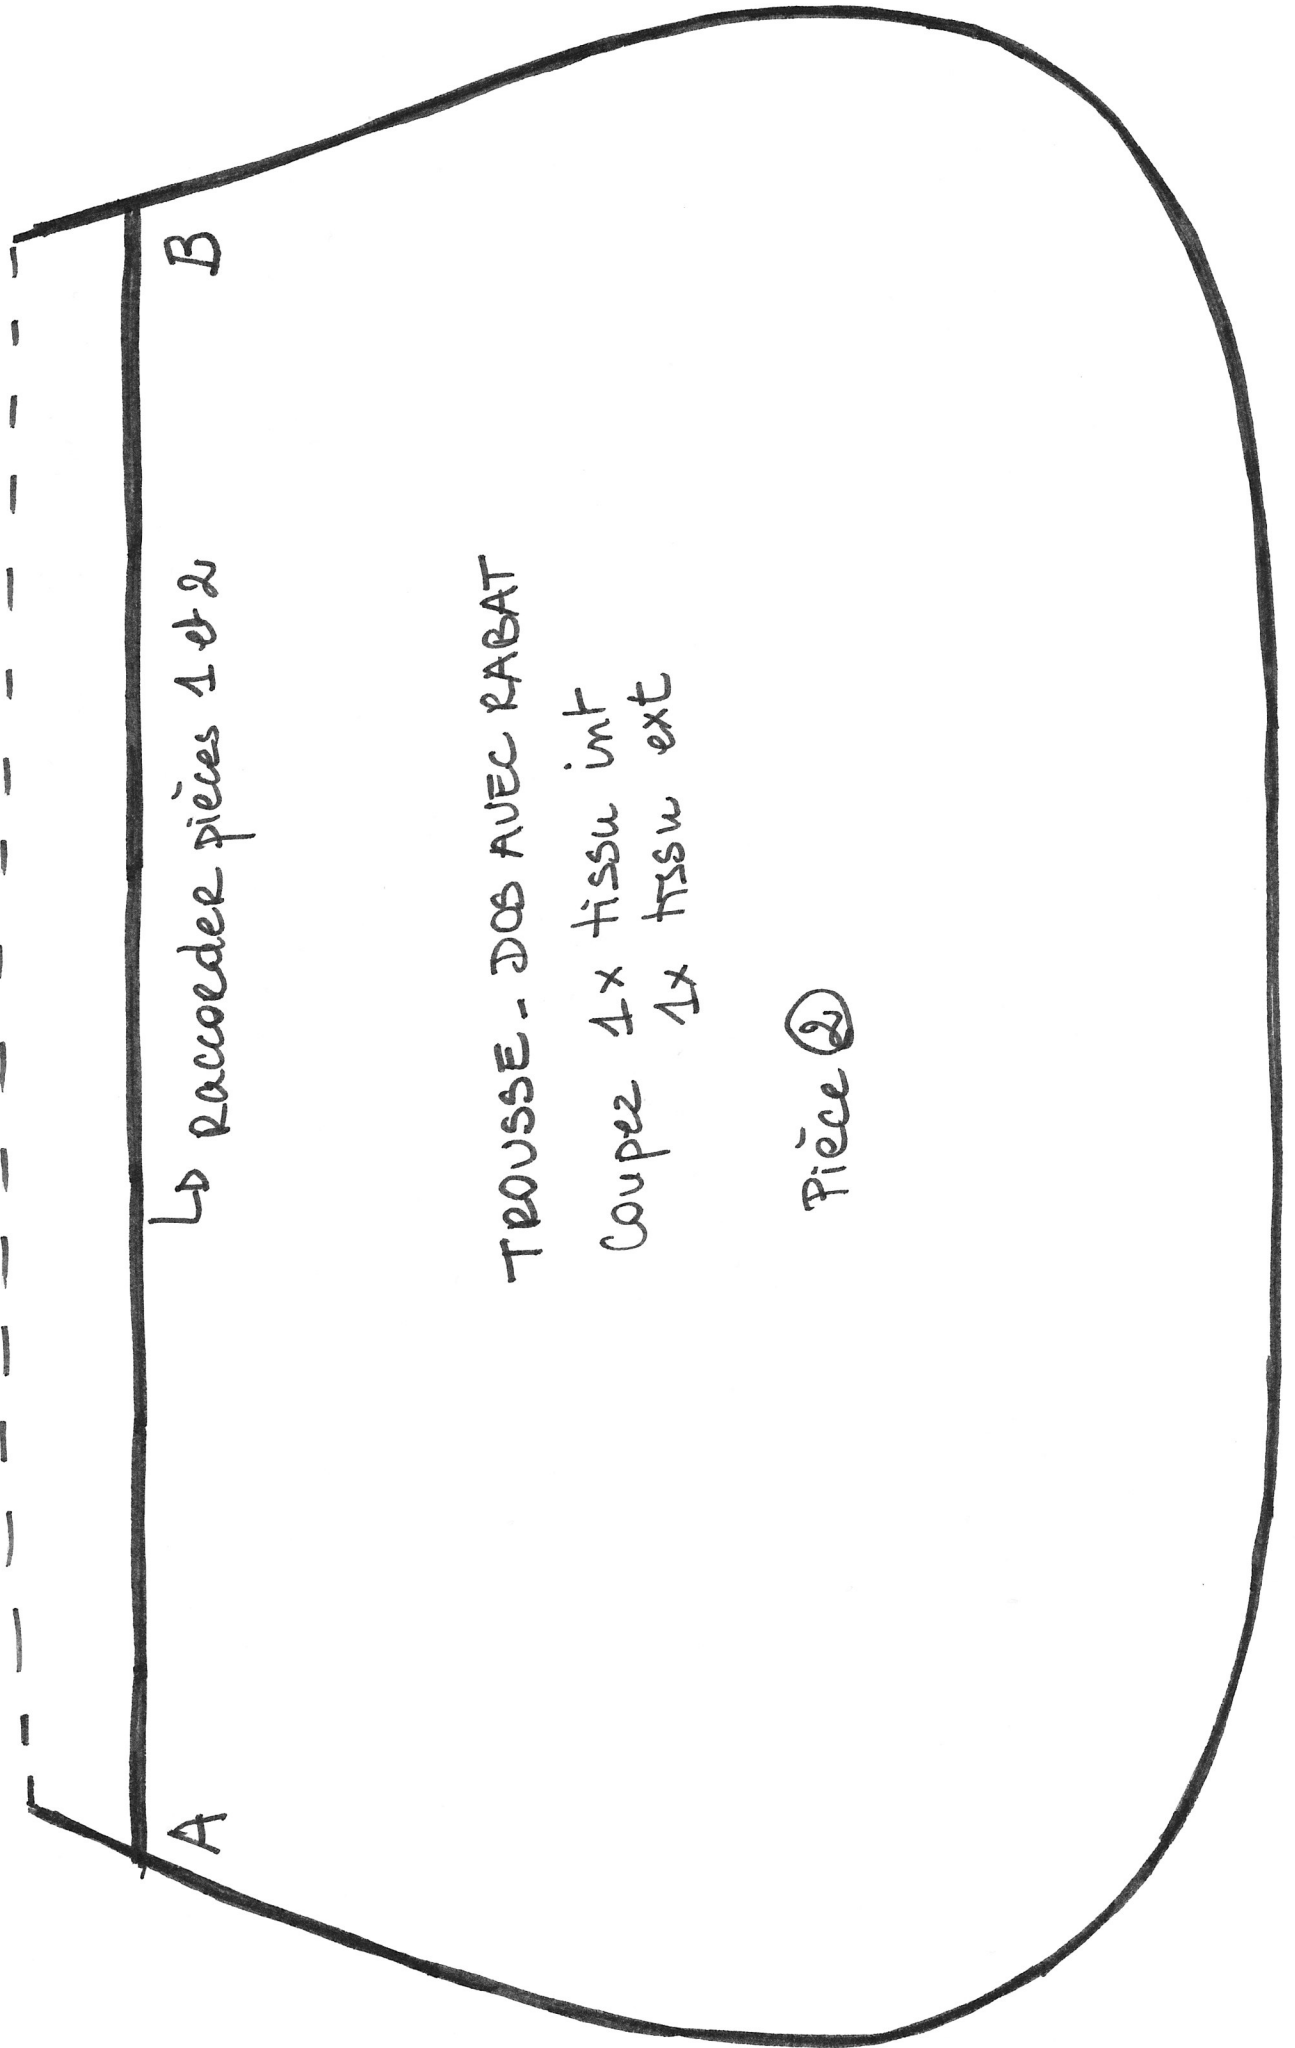 A
B
↳ Raccorder pièces 1 et 2
TROUSSE - DOS AVEC RABAT
Coupez 1x tissu int
1x tissu ext
Pièce ②